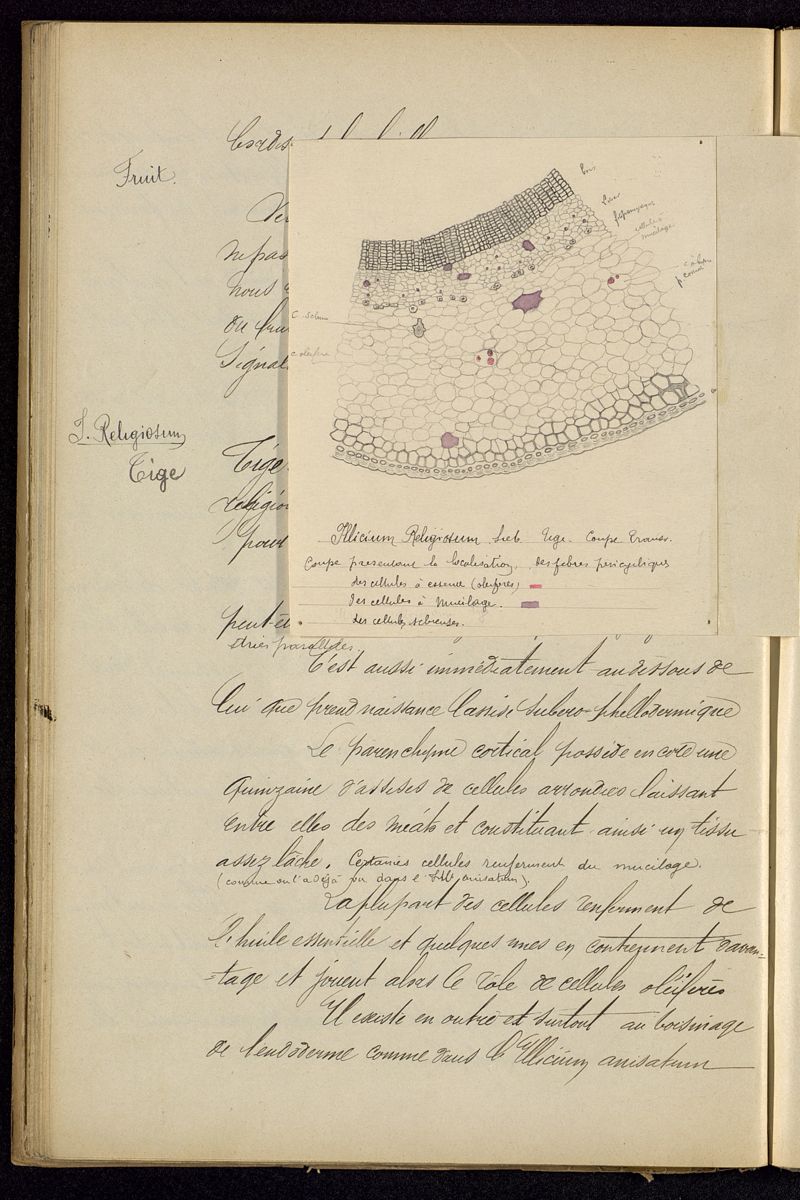 Fruit.
nous
Signal
I. Religiosum
Tige
Tige
religio
pour
Bois
Liber
cellules à
mucilage
C. oleifere
Illicium Religiosum Sieb. Tige. Coupe Transv.
Coupe présentant la localisation, des fibres péricycliques
des cellules à essence (oleifères)
des cellules à Mucilage.
des cellules scléreuses.
peut-êt
C'est aussi immédiatement au dessous de
lui que prend naissance l'assise subero-phellodermique
Le parenchyme cortical possède encore une
quinzaine d'assises de cellules arrondies laissant
entre elles des méats et constituant ainsi un tissu
assez lâche. Certaines cellules renferment du mucilage.
(comme on l'a déjà vu dans l'Ill. anisatum).
La plupart des cellules renferment de
l'huile essentielle et quelques unes en contiennent davan-
-tage et jouent alors le rôle de cellules oléifères
Il existe en outre et surtout au voisinage
de l'endoderme comme dans l'Illicium anisatum